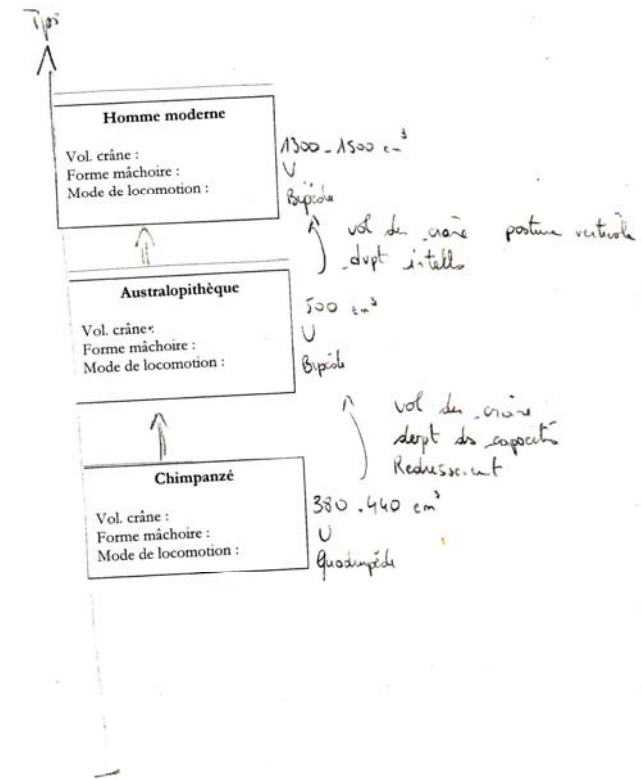 Tps
Homme moderne
Vol. crâne :
Forme mâchoire :
Mode de locomotion :
1300-1500 cm³
V
Bipède
vol du crâne posture verticale
dvpt intello
Australopithèque
Vol. crâne :
Forme mâchoire :
Mode de locomotion :
500 cm³
U
Bipède
vol du crâne
dvpt ds capacités
Redressement
Chimpanzé
Vol. crâne :
Forme mâchoire :
Mode de locomotion :
380-440 cm³
U
Quadrupède